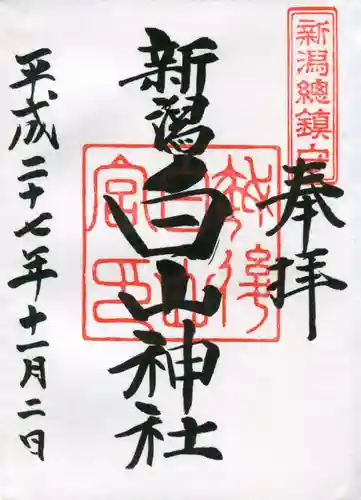 新潟總鎮守
奉拝
新潟白山神社
越後
白山
宮印
平成二十七年十一月二日